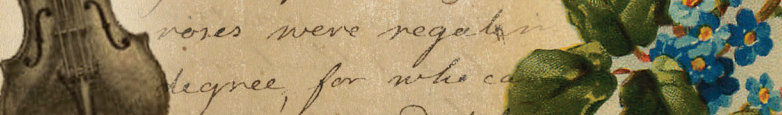 roses were regal
degree, for who ca